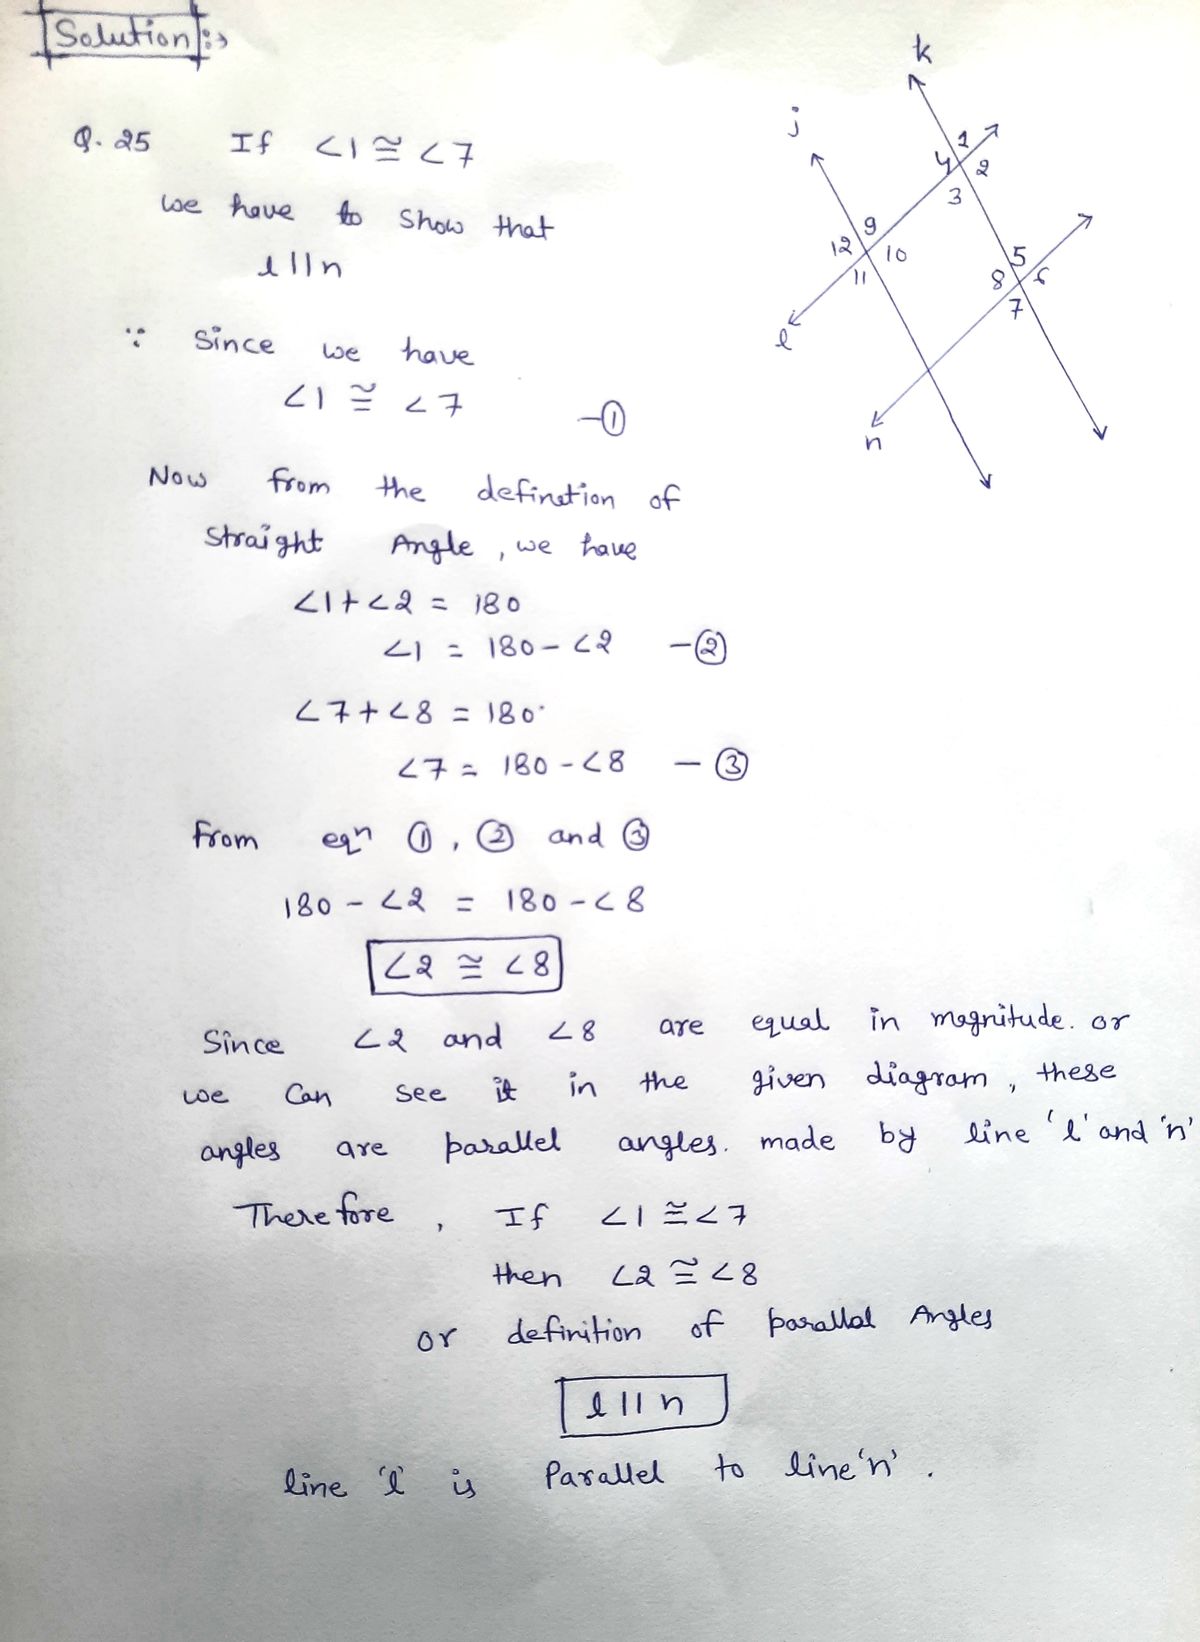 Solution :→
Q. 25 If ∠1 ≅ ∠7
we have to show that
l || n
∵ Since we have
∠1 ≅ ∠7 —①
Now from the definetion of
Straight Angle, we have
∠1+∠2 = 180
∠1 = 180 - ∠2 —②
∠7+∠8 = 180
∠7 = 180 - ∠8 — ③
From eqn ①, ② and ③
180 - ∠2 = 180 - ∠8
∠2 ≅ ∠8
Since ∠2 and ∠8 are equal in magnitude. or
we can see it in the given diagram, these
angles are parallel angles. made by line 'l' and 'n'
Therefore, If ∠1 ≅ ∠7
then ∠2 ≅ ∠8
or definition of parallal Angles
l || n
line 'l' is Parallel to line 'n'.
k
j
1
4 2
3
9
12 10
11
5
8 6
7
l
n